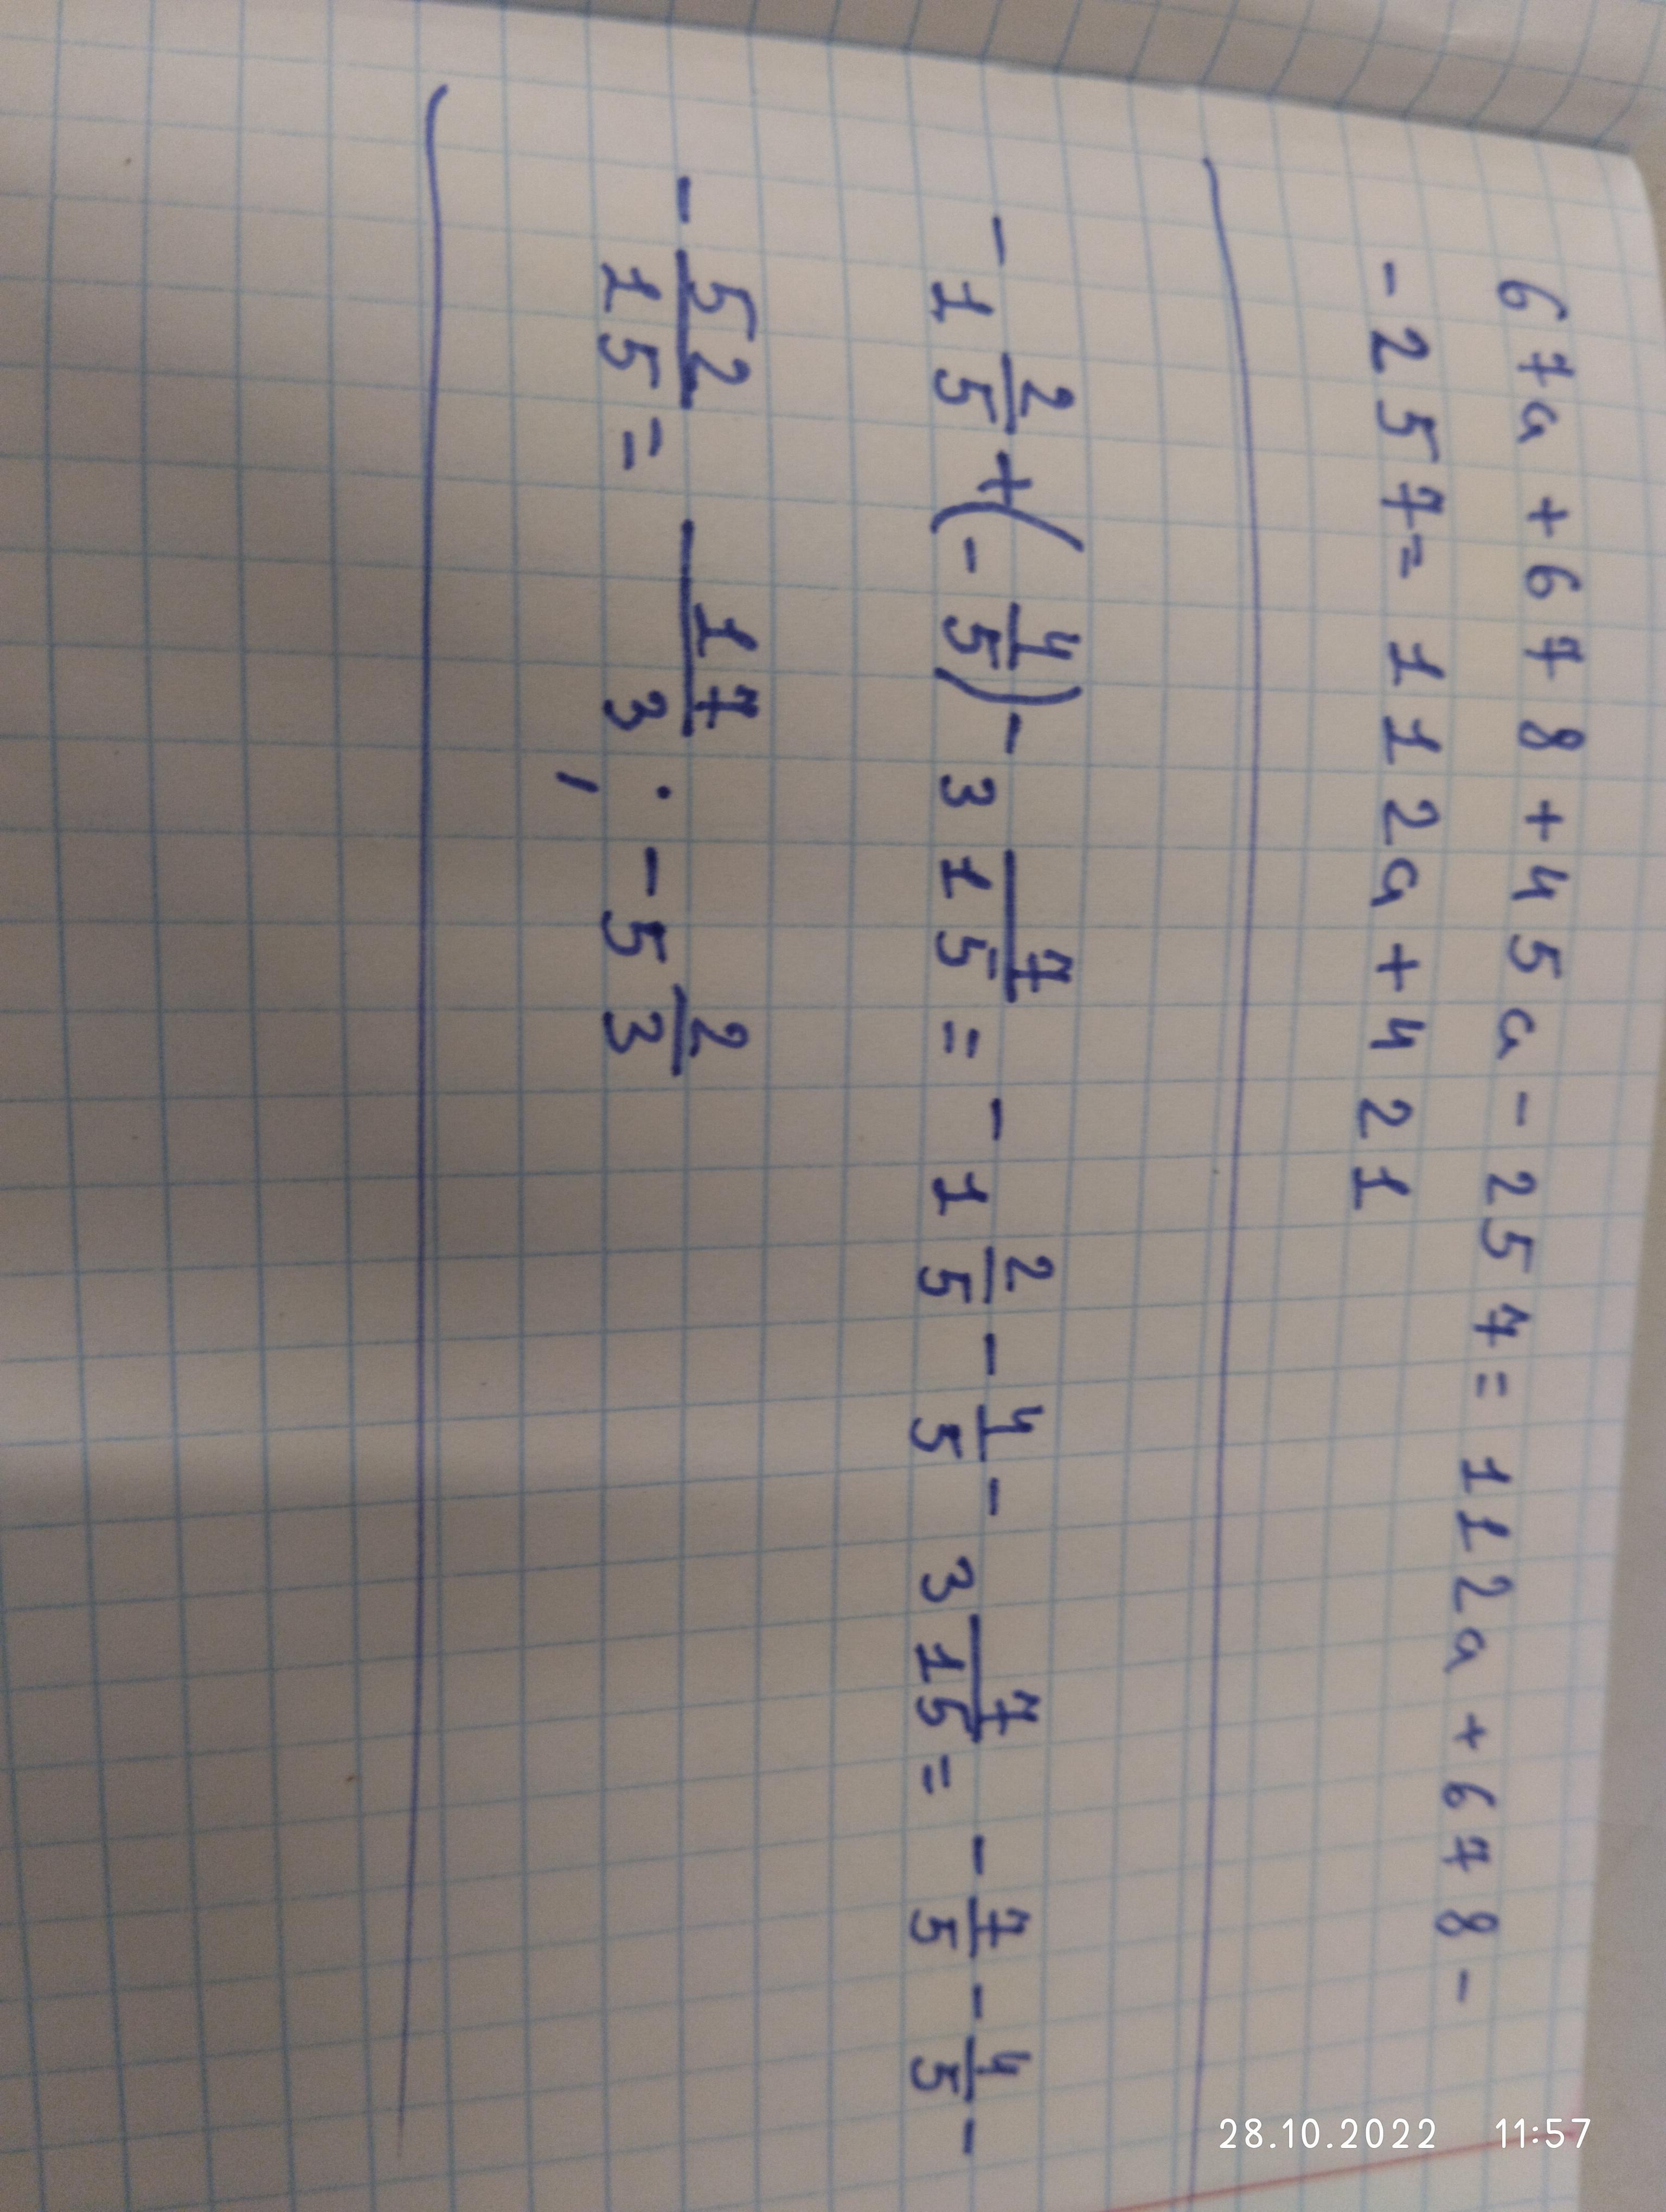 67a + 678 + 45a - 257 = 112a + 678 -
- 257 = 112a + 421
- 1 2/5 + (- 4/5) - 3 7/15 = - 1 2/5 - 4/5 - 3 7/15 = - 7/5 - 4/5 -
- 52/15 = - 17/3 ; - 5 2/3
28.10.2022 11:57